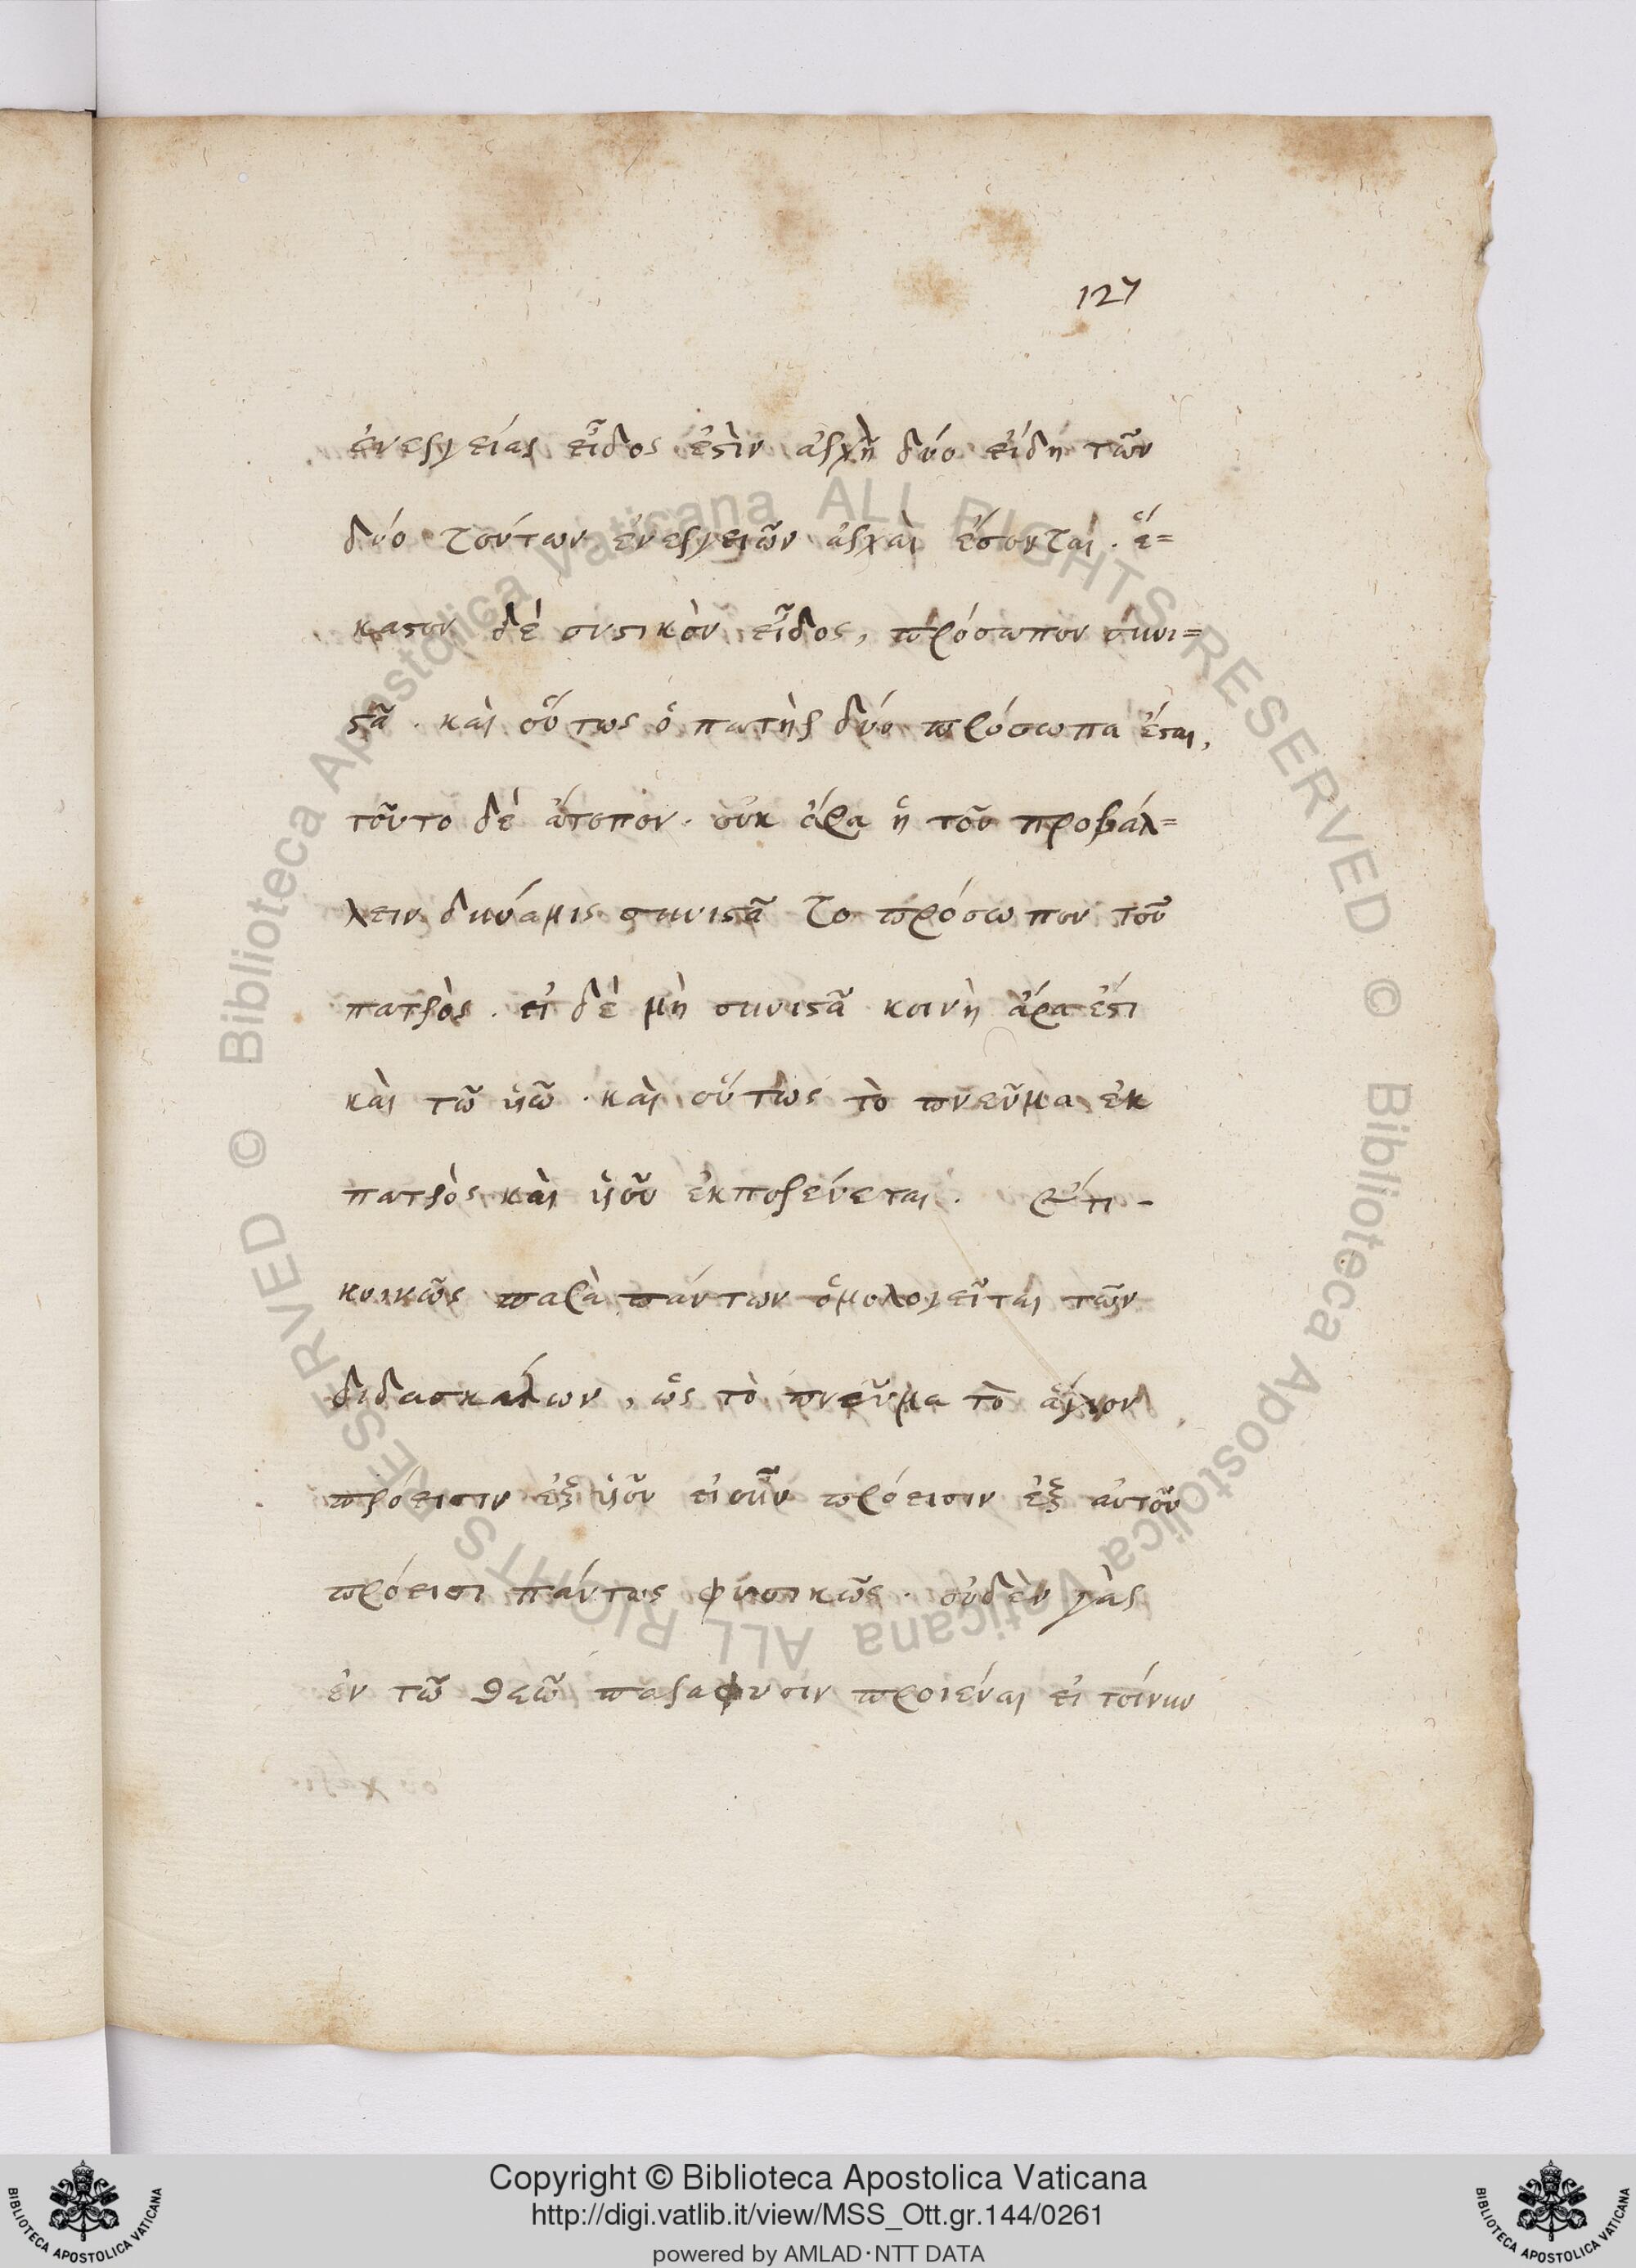 127
ἐνεργείας εἶδος ἐστὶν ἀρχὴ δύο εἴδη τῶν
δύο τούτων ἐνεργειῶν ἀρχαὶ ἔσονται. ἕ=
καστον δὲ συσικὸν εἶδος, πρόσωπον συνι=
στᾶ. καὶ οὕτως ὁ πατὴρ δύο πρόσωπα ἔσται,
τοῦτο δὲ ἄτοπον. οὐκ ἄρα ἡ τοῦ προβάλ=
λειν δυνάμις συνιστᾶ το πρόσωπον τοῦ
πατρὸς. εἰ δὲ μὴ συνιστᾶ κοινὴ ἄρα ἐστι
καὶ τῶ υἱῶ. καὶ οὕτως τὸ πνεῦμα ἐκ
πατρὸς καὶ υἱοῦ ἐκπορεύεται. Ἔτι -
κοικῶς παρὰ πάντων ὁμολογεῖται τῶν
διδασκάλων, ὡς τὸ πνεῦμα τὸ ἅγιον
πρόεισιν ἐξ υἱοῦ εἰ οὖν πρόεισιν ἐξ αὐτοῦ
πρόεισι πάντως φυσικῶς. οὐδὲν γὰρ
ἐν τῶ θεῶ παραφυσιν προιέναι εἰ τοίνυν
Biblioteca Apostolica Vaticana ALL RIGHTS RESERVED ©
Biblioteca Apostolica Vaticana ALL RIGHTS RESERVED ©
Copyright © Biblioteca Apostolica Vaticana
http://digi.vatlib.it/view/MSS_Ott.gr.144/0261
powered by AMLAD·NTT DATA
BIBLIOTECA APOSTOLICA VATICANA
BIBLIOTECA APOSTOLICA VATICANA